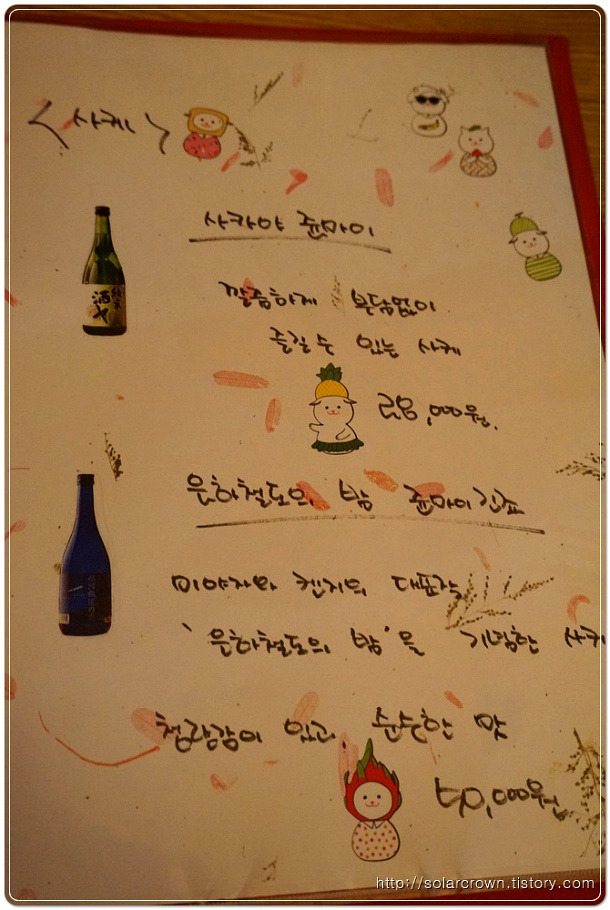 <사케>
사카야 쥰마이
깔끔하게 부담없이
즐길 수 있는 사케
28,000원.
은하철도의 밤 쥰마이긴죠
미야자와 켄지의 대표작
'은하철도의 밤'을 기념한 사케
청량감이 있고 순순한 맛
50,000원
http://solarcrown.tistory.com